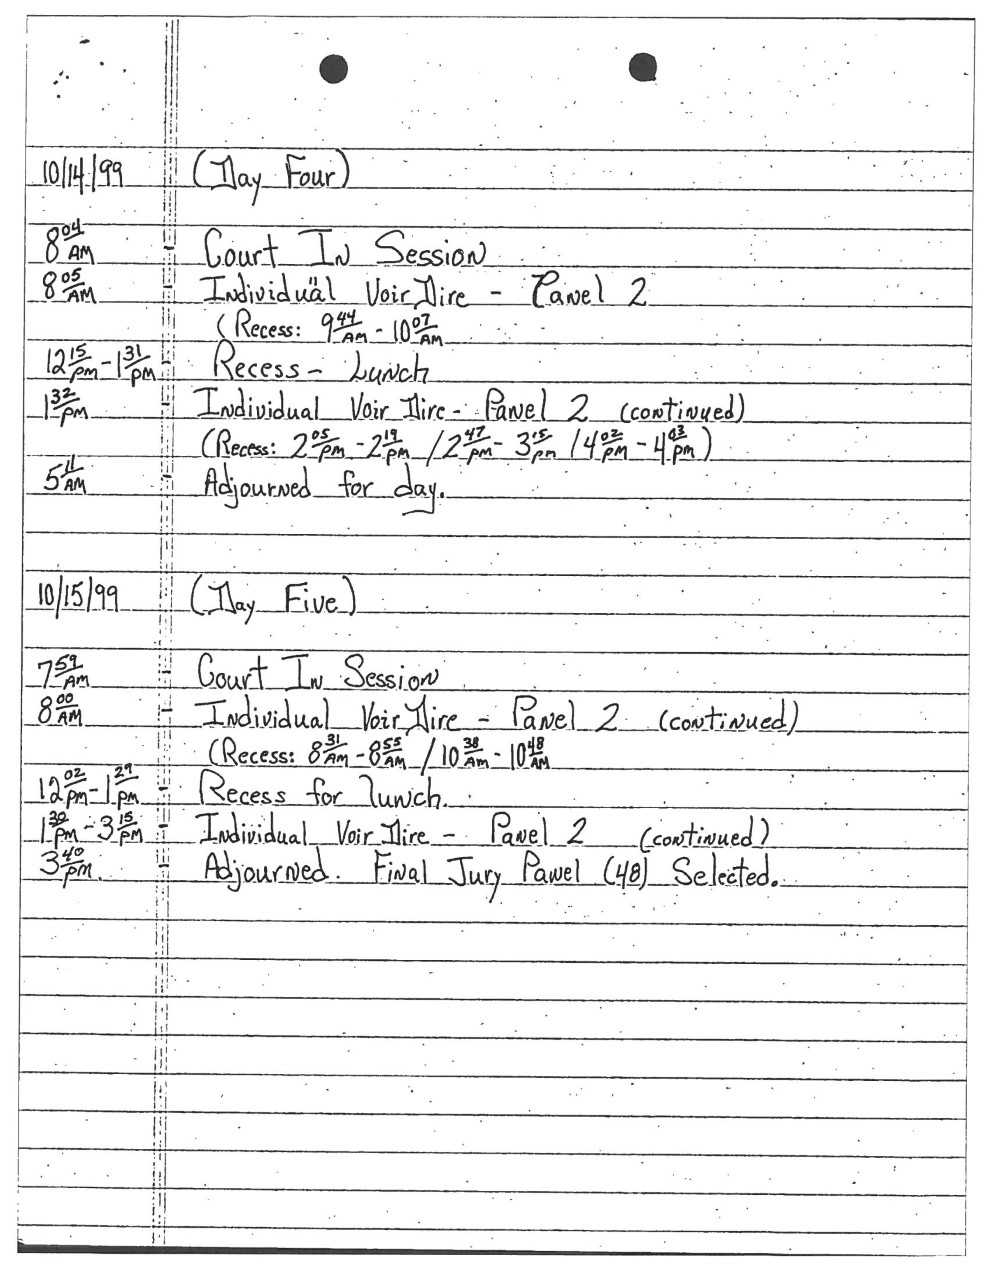 10/14/99 (Day Four)
8 04 AM - Court In Session
8 05 AM - Individual Voir Dire - Panel 2
(Recess: 9 44 AM - 10 07 AM
12 15 pm - 1 31 pm - Recess - Lunch
1 32 pm - Individual Voir Dire - Panel 2 (continued)
(Recess: 2 05 pm - 2 19 pm / 2 47 pm - 3 15 pm / 4 02 pm - 4 pm)
5 11 AM - Adjourned for day.
10/15/99 (Day Five)
7 59 AM - Court In Session
8 00 AM - Individual Voir Dire - Panel 2 (continued)
(Recess: 8 31 AM - 8 55 AM / 10 38 AM - 10 48 AM
12 02 pm - 1 29 pm - Recess for lunch.
1 30 pm - 3 15 pm - Individual Voir Dire - Panel 2 (continued)
3 40 pm. - Adjourned. Final Jury Panel (48) Selected.